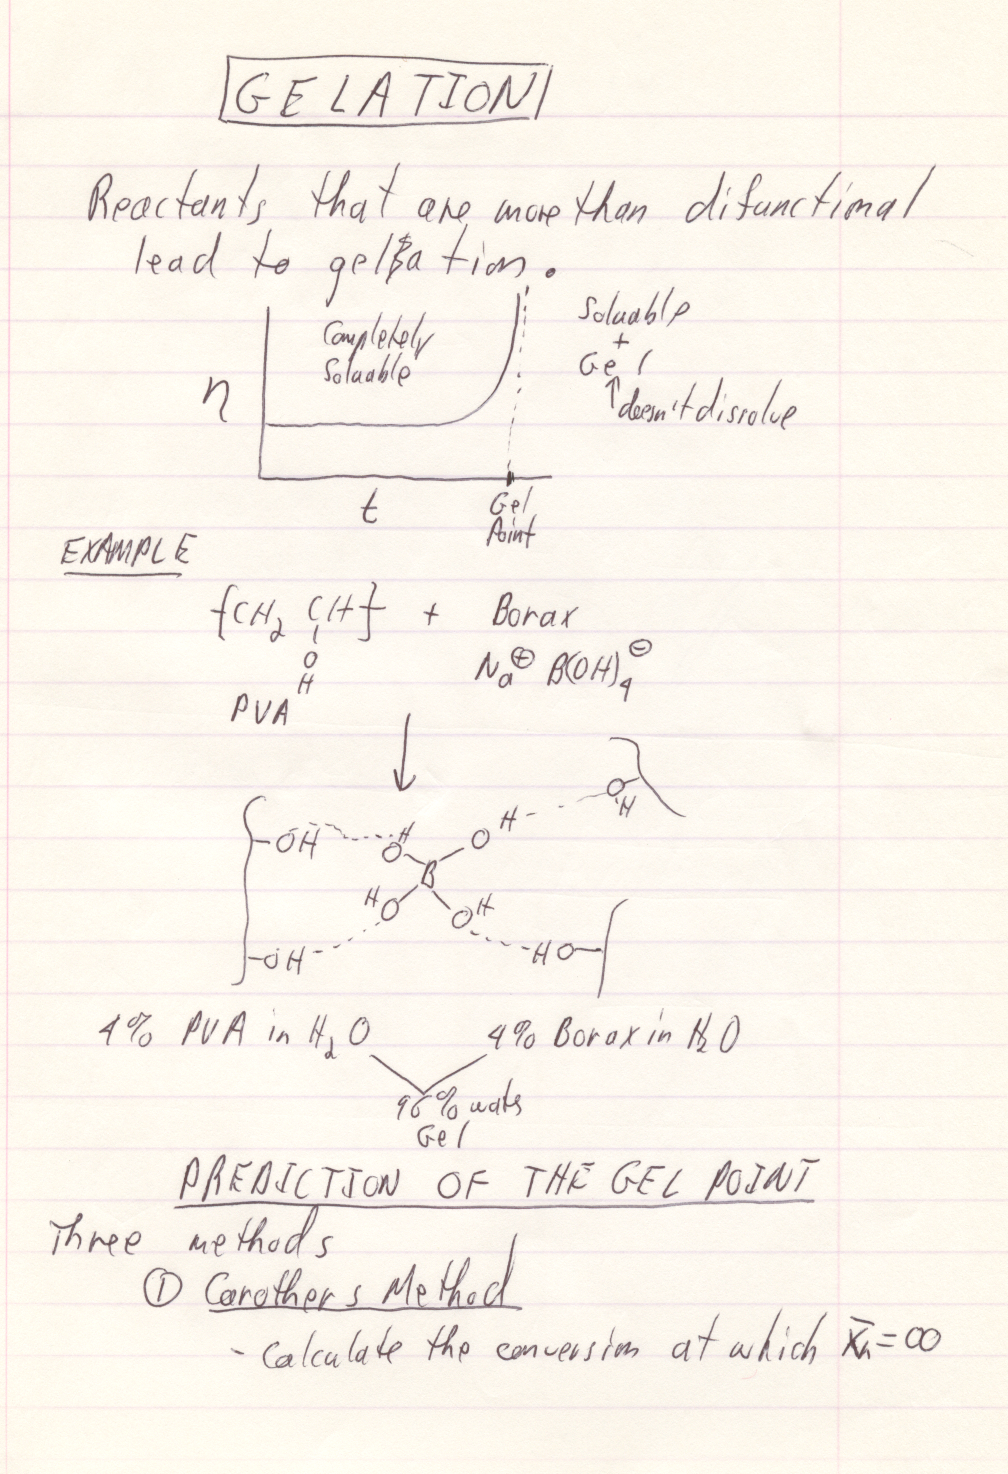 GELATION
Reactants that are more than difunctional
lead to gelation.
Completely
Soluable
η
t
Gel
Point
Soluable
+
Gel
↑ doesn't dissolve
EXAMPLE
{CH2 CH} + Borax
O
H
Na⊕ B(OH)4⊖
PVA
OH
H
O
O
H
O
H
B
H
O
O
H
OH
HO
4% PVA in H2O 4% Borax in H2O
96% water
Gel
PREDICTION OF THE GEL POINT
Three methods
① Carothers Method
- Calculate the conversion at which X̄n = ∞